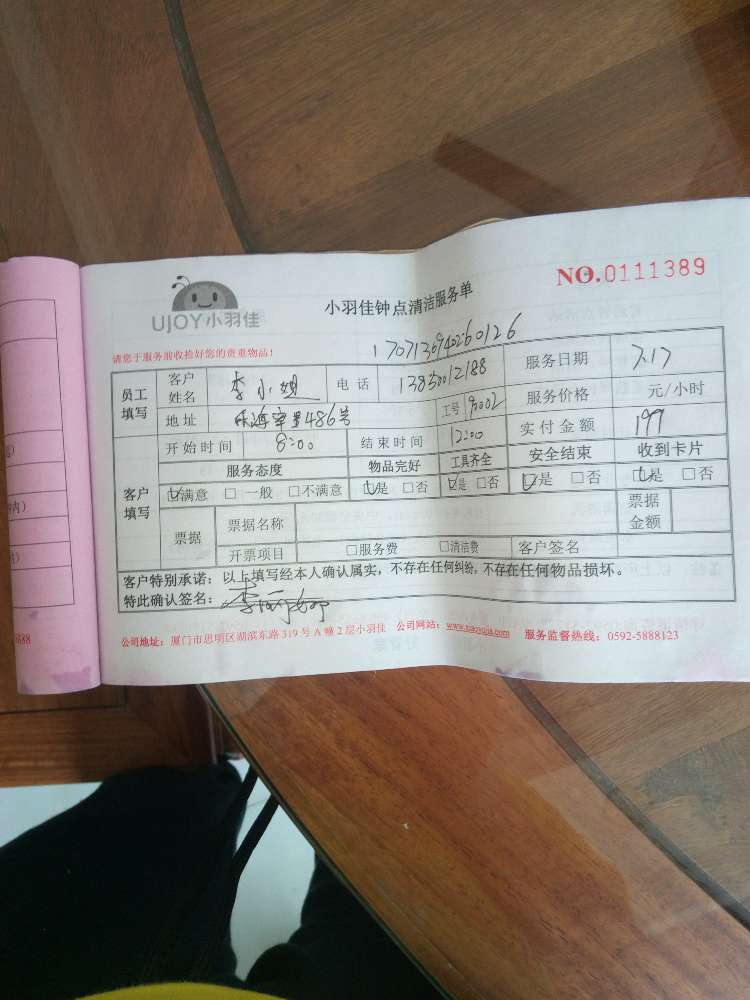 UJOY小羽佳
小羽佳钟点清洁服务单
NO.0111389
请您于服务前收拾好您的贵重物品!
1707136940260126
员工填写 客户姓名 李小姐 电话 13850012188 服务日期 7.17
地址 486号 工号 90002 服务价格 元/小时
客户填写 开始时间 8:00 结束时间 12:00 实付金额 199
服务态度 物品完好 工具齐全 安全结束 收到卡片
☑满意 □一般 □不满意 ☑是 □否 ☑是 □否 ☑是 □否 ☑是 □否
票据 票据名称 票据金额
开票项目 □服务费 □清洁费 客户签名
客户特别承诺：以上填写经本人确认属实，不存在任何纠纷，不存在任何物品损坏。
特此确认签名：
公司地址：厦门市思明区湖滨东路319号A幢2层小羽佳 公司网站：www.xiaoyujia.com 服务监督热线：0592-5888123